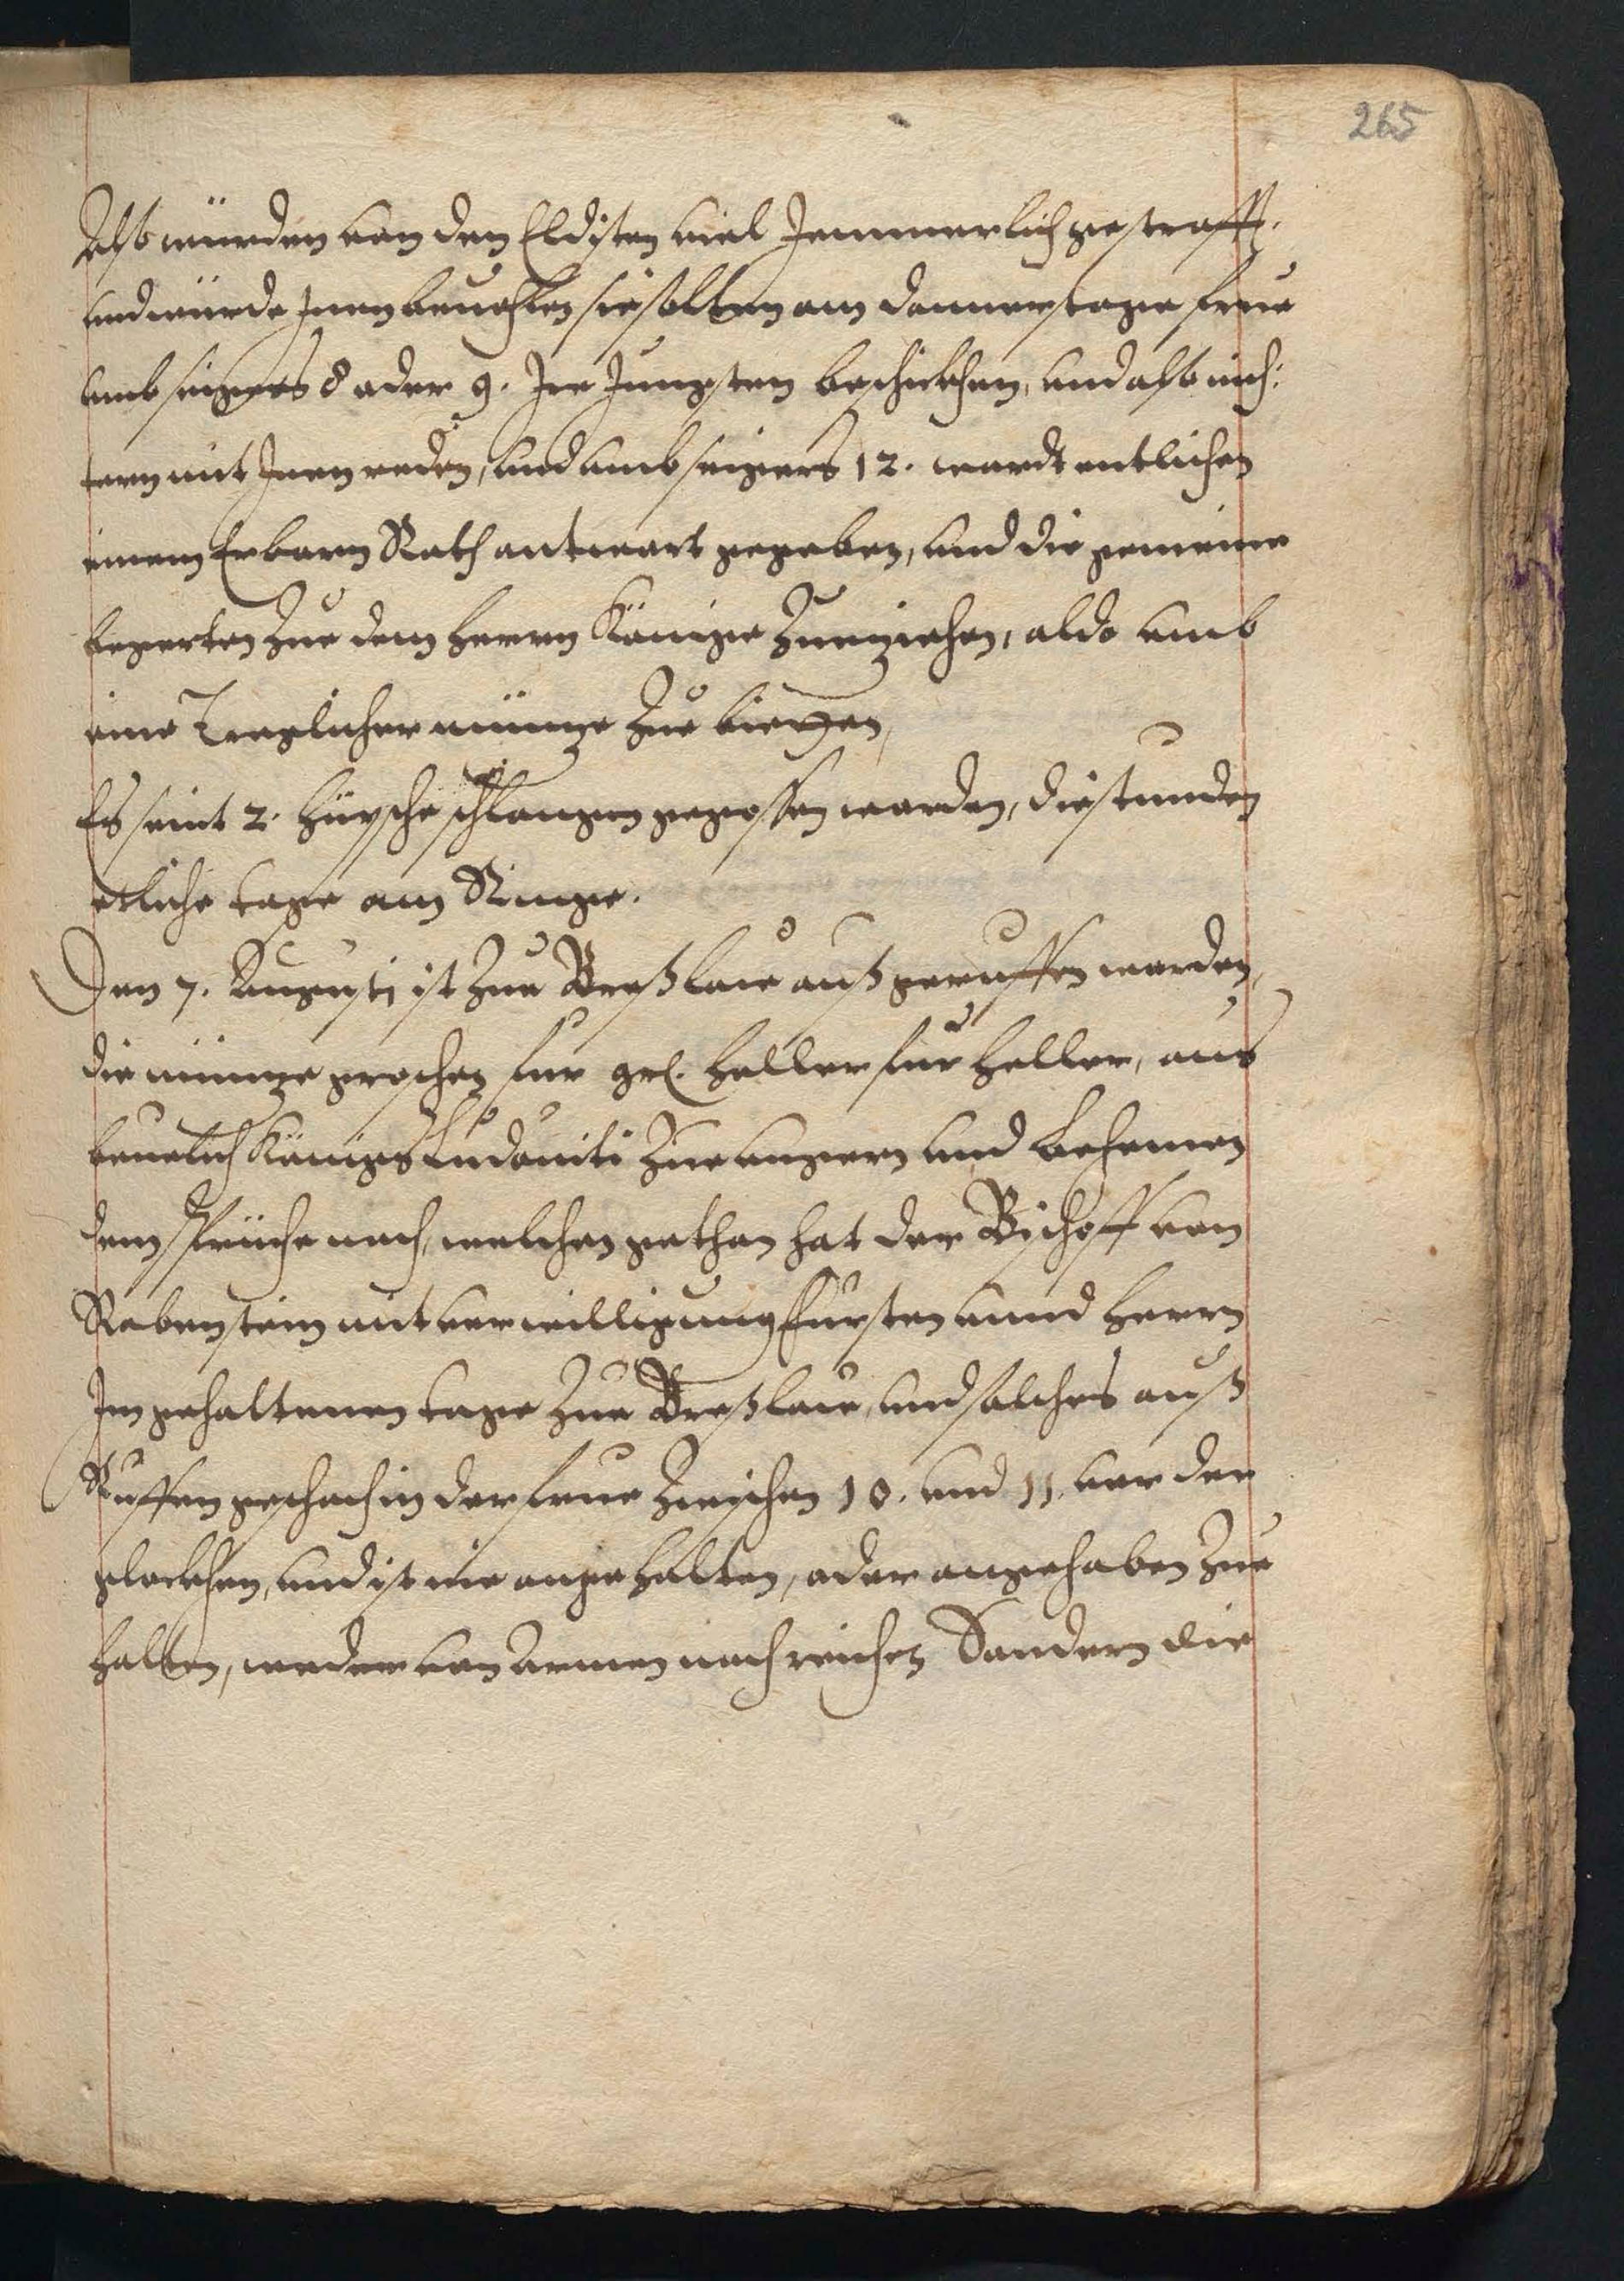 265
Also wurden von den Eldisten viel Jemmerlich gestrafft.
und wurde Jnen beuohlen sie solten am donnerstage frue
umb seigers 8 oder 9. Jre Jungsten beschickhen, und also nich:
tern mit Jnen reden, und umb seigers 12. wardt entlichen
einem Erbarn Rath antwort gegeben, und die gemeine
begerten Zue dem herrn Könige Zuziehen, aldo umb
eine Treglicher müntze Zue
Es seint 2. hüpsche schlangen gegossen worden, die stunden
etliche tage am Ringe.
Den 7. Augusti ist Zue Breßlaw außgeruffen worden,
die müntze groschen fur grl. heller fur heller, aus
beuelich Königs Ludouici Zue ungern und Behemen
dem spruche nach, welchen gethan hat der Bischoff von
Rabenstein mit verwilligung Fursten unnd herrn
Jm gehaltenen tage Zue Breßlaw, und solches auß
Ruffen geschach in der frue Zwischen 10. und 11. vor der
glockhen, und ist nie angehalten, oder angehaben Zue
halten, weder von Armen noch reichen Sondern die